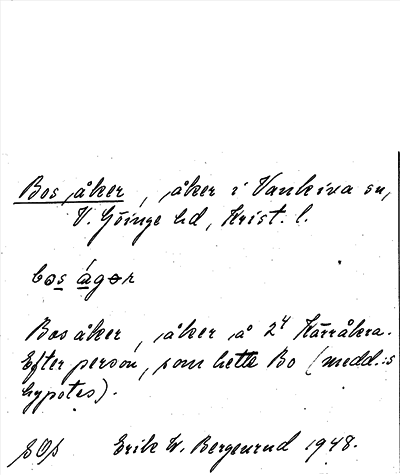 Bos åker, åker i Vankiva sn,
V. Göinge hd, Krist. l.
bos ågər
Bos åker, åker å 2⁴ Kärråkra.
Efter person, som hette Bo (medd.:s
hypotes).
Erik W. Bergenrud 1948.